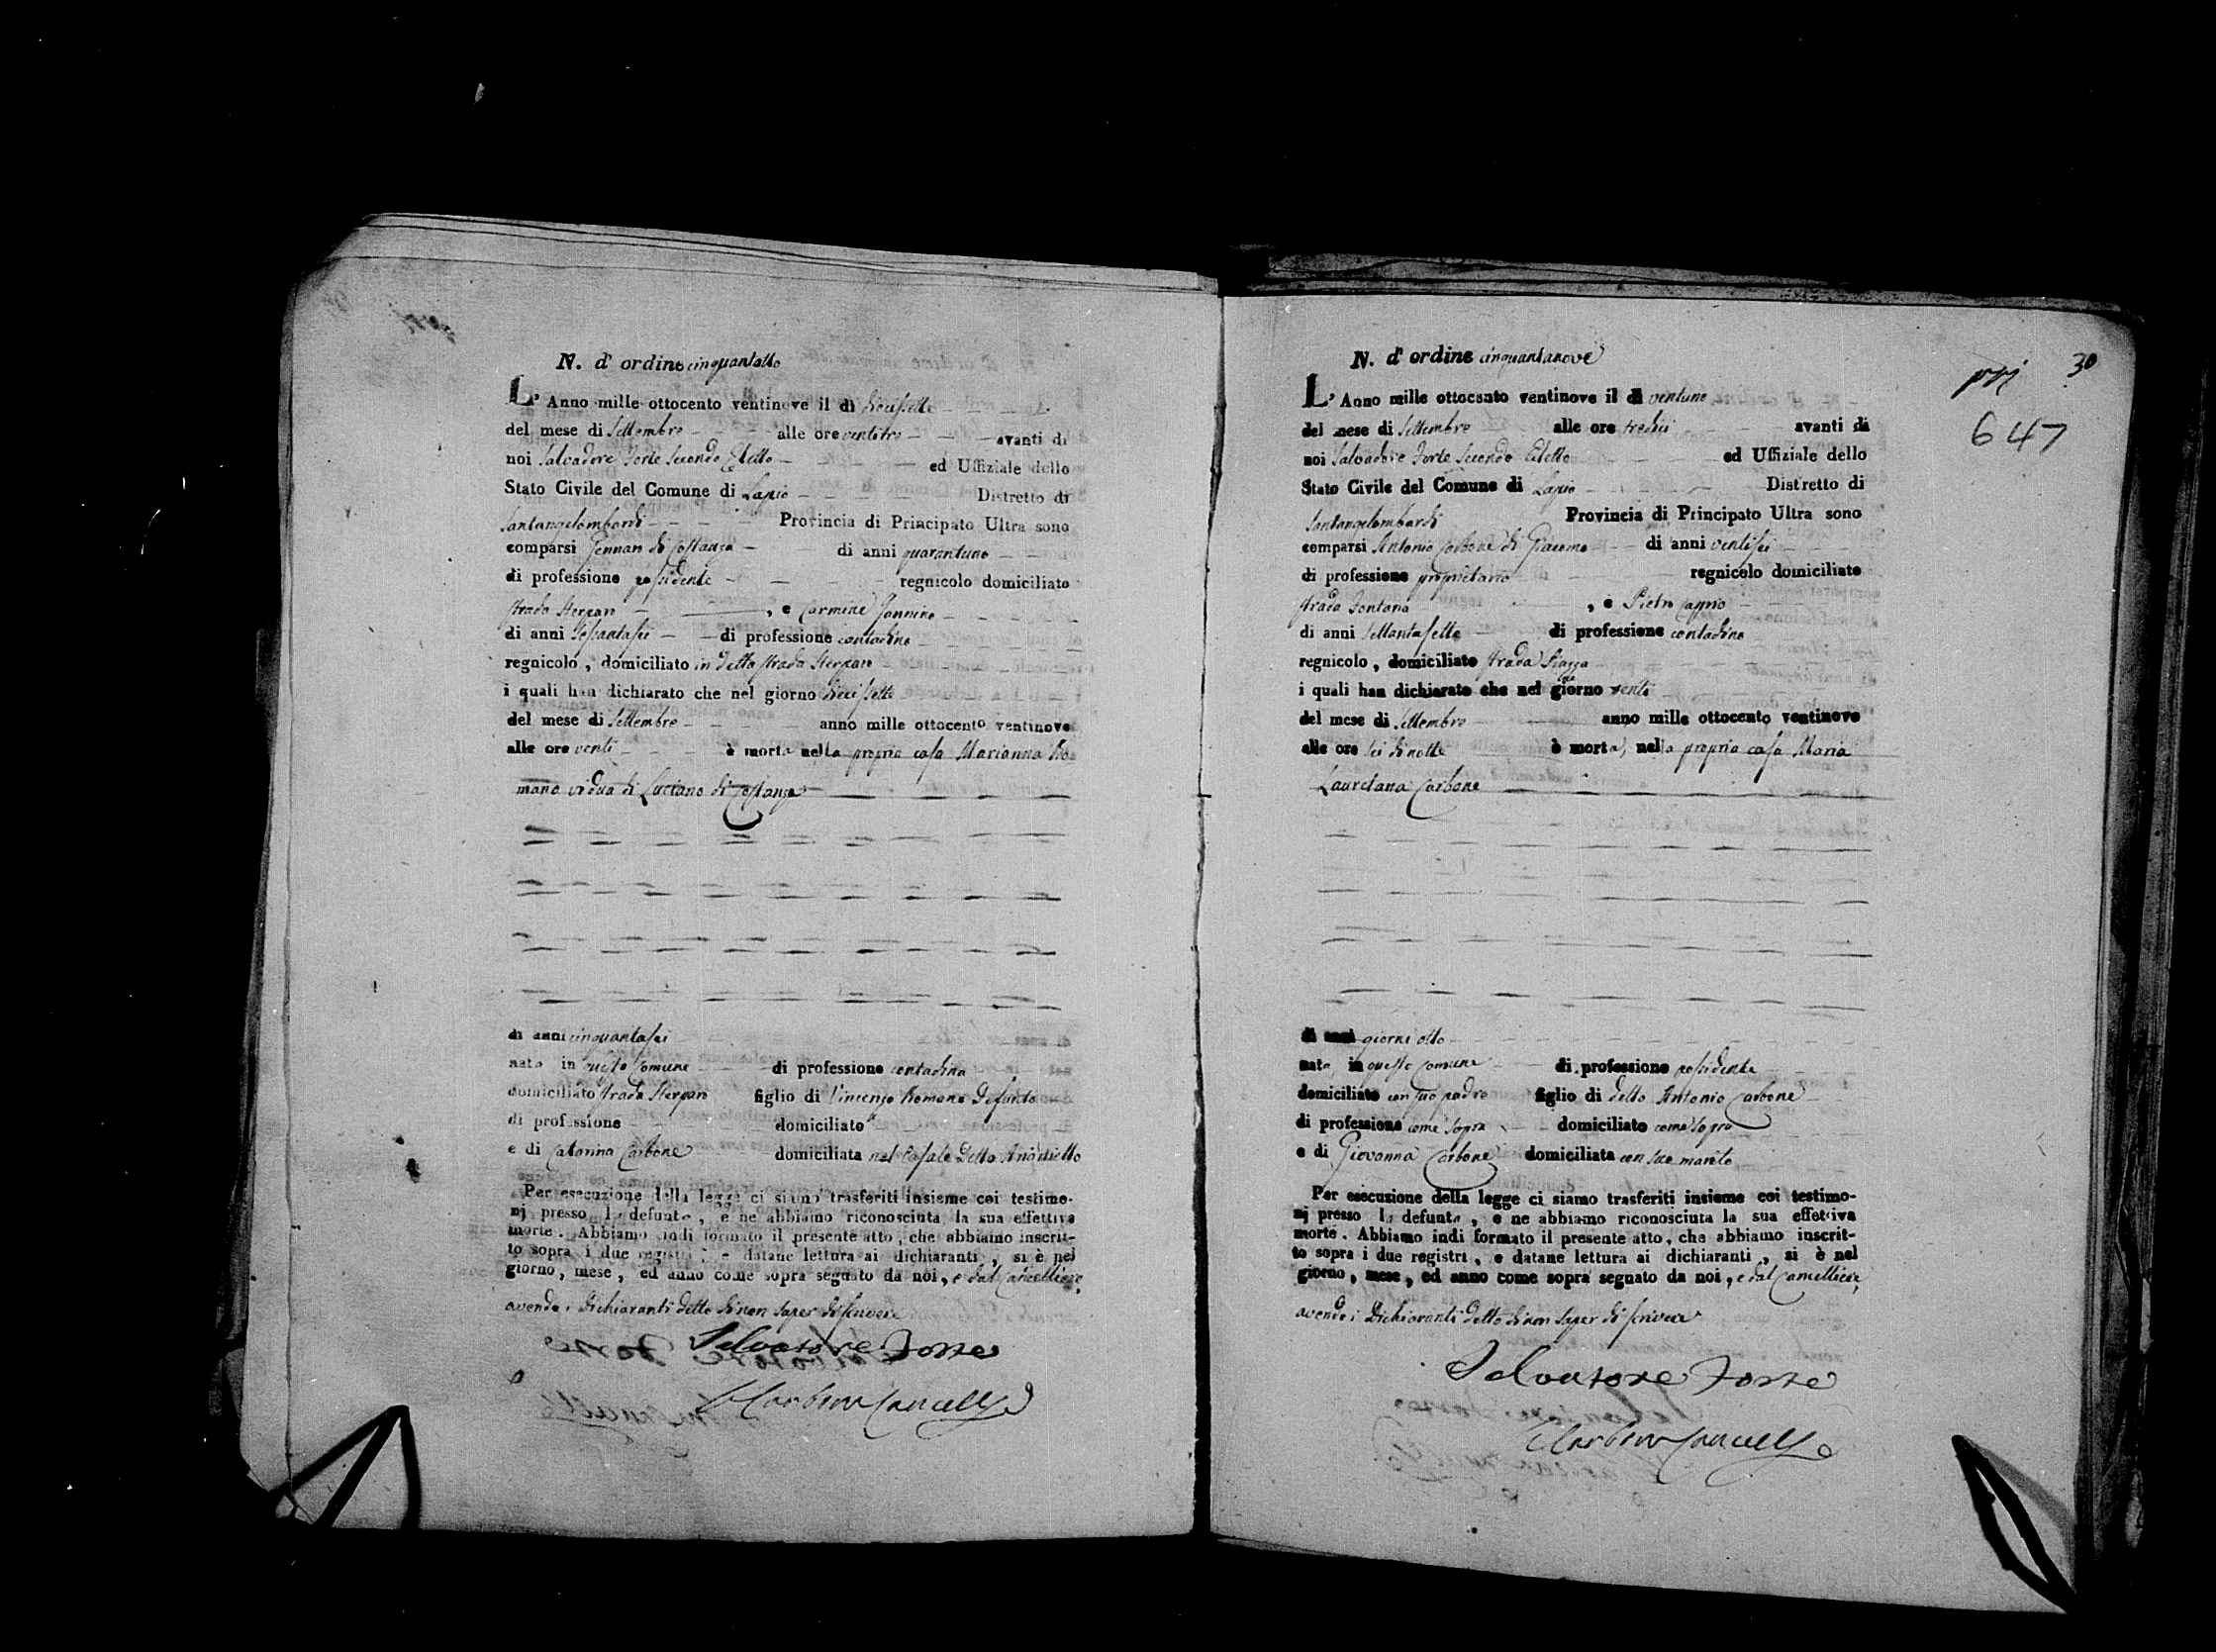 N. d' ordine cinquantotto
L'Anno mille ottocento ventinove il dì diecisette
del mese di Settembre alle ore ventitre avanti di
noi Salvadore Forte Secondo Eletto ed Uffiziale dello
Stato Civile del Comune di Lapio Distretto di
Santangelombardi Provincia di Principato Ultra sono
comparsi Gennaro di Costanza di anni quarantuno
di professione possidente regnicolo domiciliato
strada , e Carmine Iannino
di anni Sessantasei di professione contadino
regnicolo, domiciliato in detta strada
i quali han dichiarato che nel giorno diecisette
del mese di Settembre anno mille ottocento ventinove
alle ore venti è morta nella propria casa Marianna Ro=
mano vidua di Luciano di Costanza
di anni cinquantasei
nata in questo Comune di professione contadina
domiciliato strada figlio di Vincenzo Romano Defunto
di professione domiciliato
e di Catarina Carbone domiciliata nel Casale detto
Per esecuzione della legge ci siamo trasferiti insieme coi testimo-
nj presso la defunta, e ne abbiamo riconosciuta la sua effettiva
morte. Abbiamo indi formato il presente atto, che abbiamo inscrit-
to sopra i due registri, e datane lettura ai dichiaranti, si è nel
giorno, mese, ed anno come sopra segnato da noi, e dal Cancelliere,
avendo i Dichiaranti detto di non saper di scrivere
Salvatore Forte
Carbone Cancelle
prj 30
647
N. d' ordine cinquantanove
L'Anno mille ottocento ventinove il dì ventuno
del mese di Settembre alle ore tredici avanti di
noi Salvadore Forte Secondo Eletto ed Uffiziale dello
Stato Civile del Comune di Lapio Distretto di
Santangelombardi Provincia di Principato Ultra sono
comparsi Antonio Carbone di Giacomo di anni ventisei
di professione proprietario regnicolo domiciliato
strada Fontana , e Pietro Caprio
di anni Settantasette di professione contadino
regnicolo, domiciliato strada Piazza
i quali han dichiarato che nel giorno venti
del mese di Settembre anno mille ottocento ventinove
alle ore sei di notte è morta, nella propria casa Maria
Lauretana Carbone
di anni giorni otto
nata in questo Comune di professione possidente
domiciliato con suo padre figlio di detto Antonio Carbone
di professione come sopra domiciliato come sopra
e di Giovanna Carbone domiciliata con suo marito
Per esecuzione della legge ci siamo trasferiti insieme coi testimo-
nj presso la defunta, e ne abbiamo riconosciuta la sua effettiva
morte. Abbiamo indi formato il presente atto, che abbiamo inscrit-
to sopra i due registri, e datane lettura ai dichiaranti, si è nel
giorno, mese, ed anno come sopra segnato da noi, e dal Cancelliere,
avendo i Dichiaranti detto di non saper di scrivere
Salvatore Forte
Carbone Cancelle